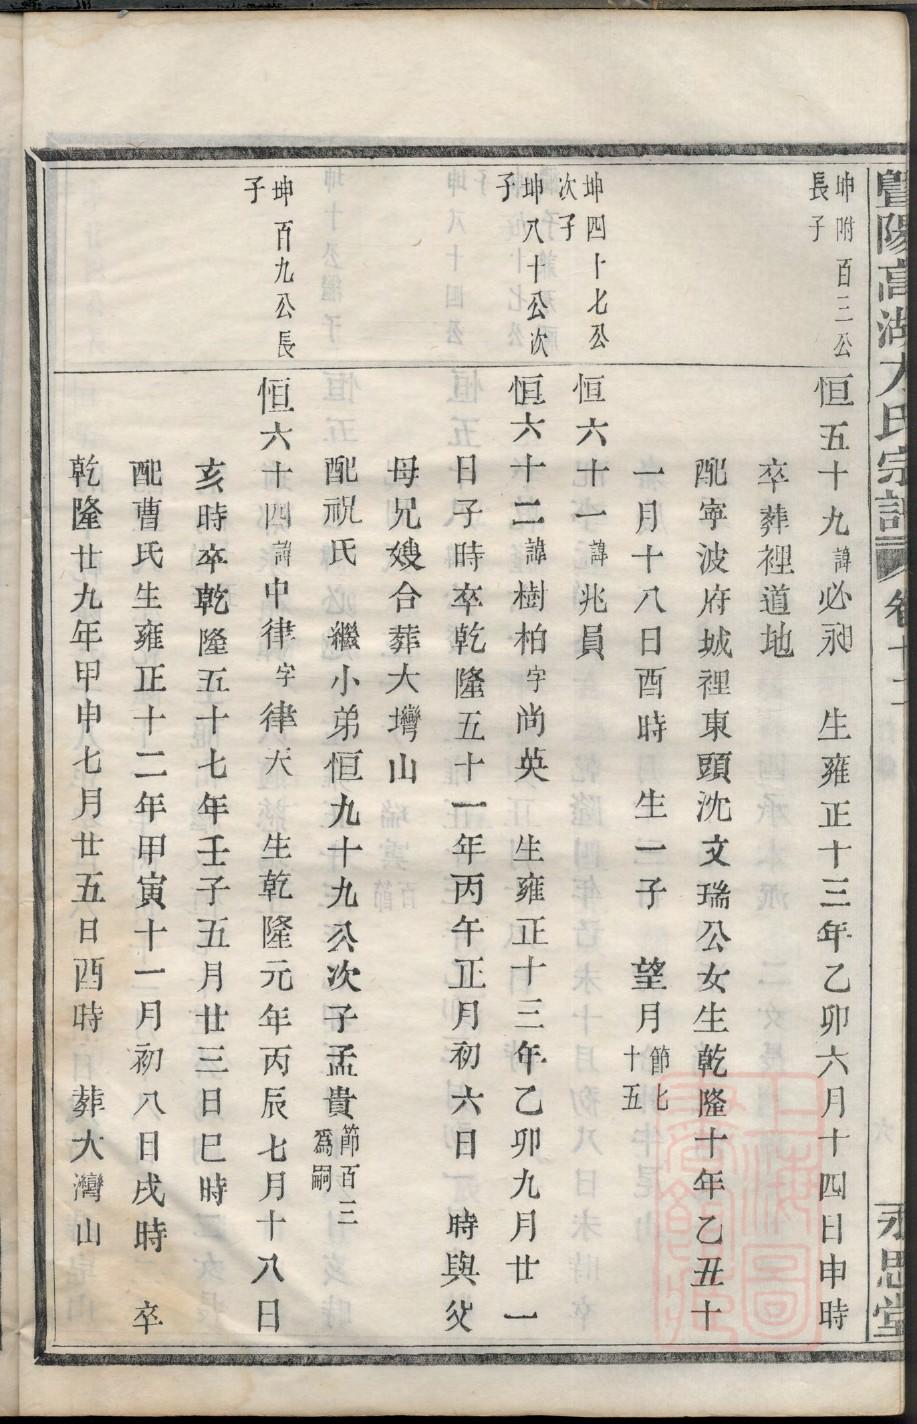 暨陽高湖方氏宗譜 卷十二 永思堂
坤附百三公
長子
恒五十九諱必永 生雍正十三年乙卯六月十四日申時
卒葬裡道地
配寧波府城裡東頭沈文瑞公女生乾隆十年乙丑十
一月十八日酉時 生一子 望月節七十五
坤四十七公
次子
恒六十一諱兆員
坤八十公次
子
恒六十二諱樹柏字尚英 生雍正十三年乙卯九月廿一
日子時卒乾隆五十一年丙午正月初六日 時與父
母兄嫂合葬大塆山
配祝氏 繼小弟恒九十九公次子孟貴節百二爲嗣
坤百九公長
子
恒六十四諱中律字律天 生乾隆元年丙辰七月十八日
亥時卒乾隆五十七年壬子五月廿三日巳時
配曹氏生雍正十二年甲寅十一月初八日戌時 卒
乾隆廿九年甲申七月廿五日酉時 葬大灣山